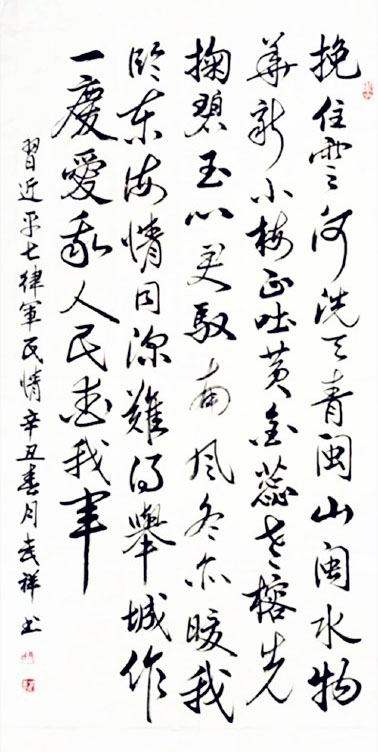 挽住雲河洗天青閩山閩水物
華新小梅正吐黄金蕊老榕先
掬碧玉心君馭南風冬亦暖我
臨東海情同深難得舉城作
一慶愛我人民愛我軍
習近平七律軍民情辛丑春月武祥书